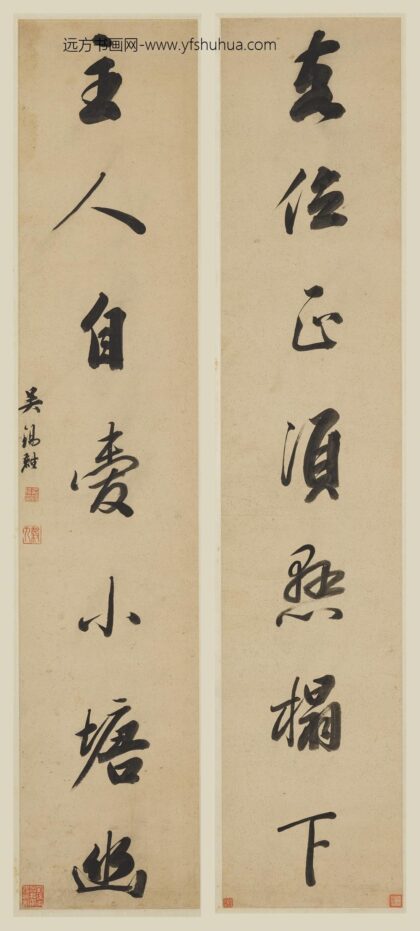 远方书画网-www.yfshuhua.com
位正須懸榻下
主人自愛小塘幽
吳錫麒